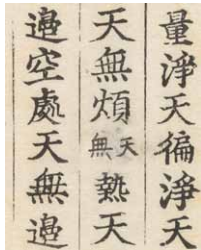 量淨天徧淨天
天無煩天無熱天
邊空處天無邊